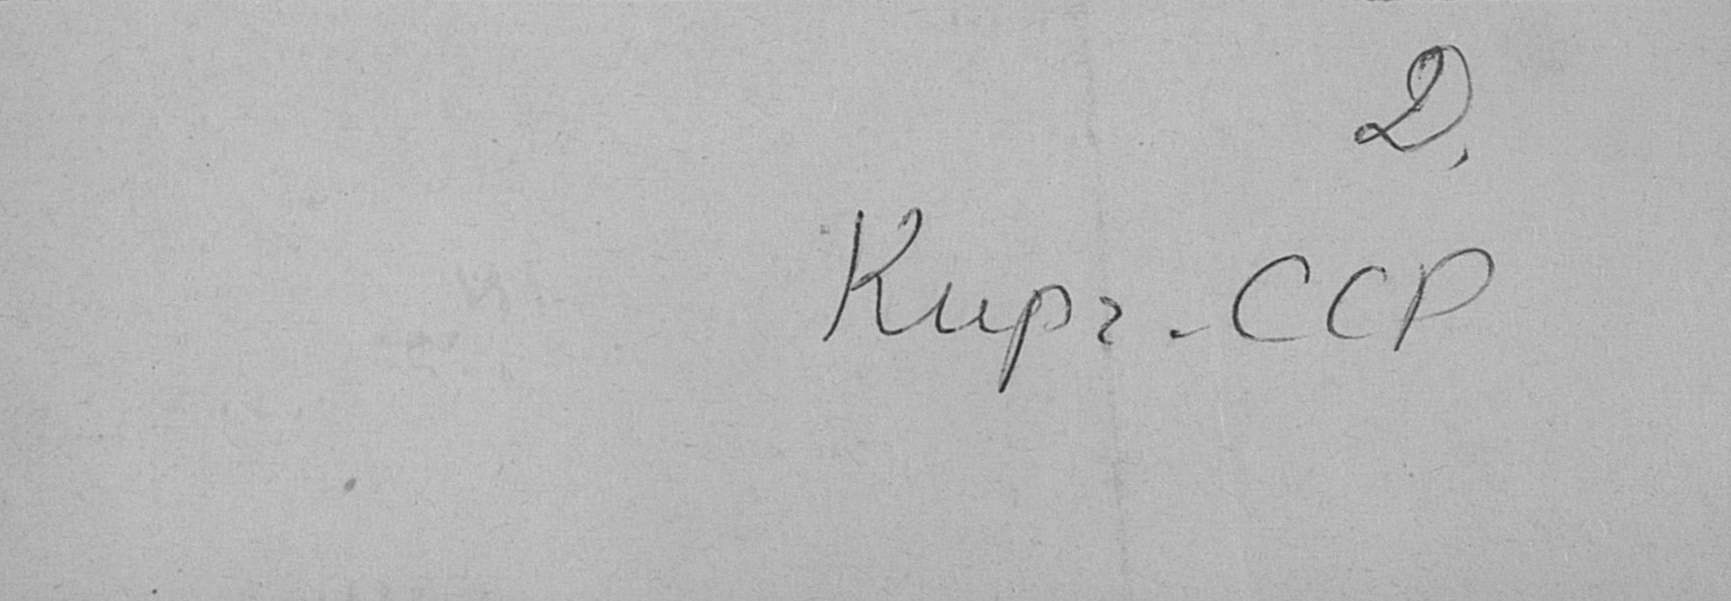 Д,
Кирг. ССР